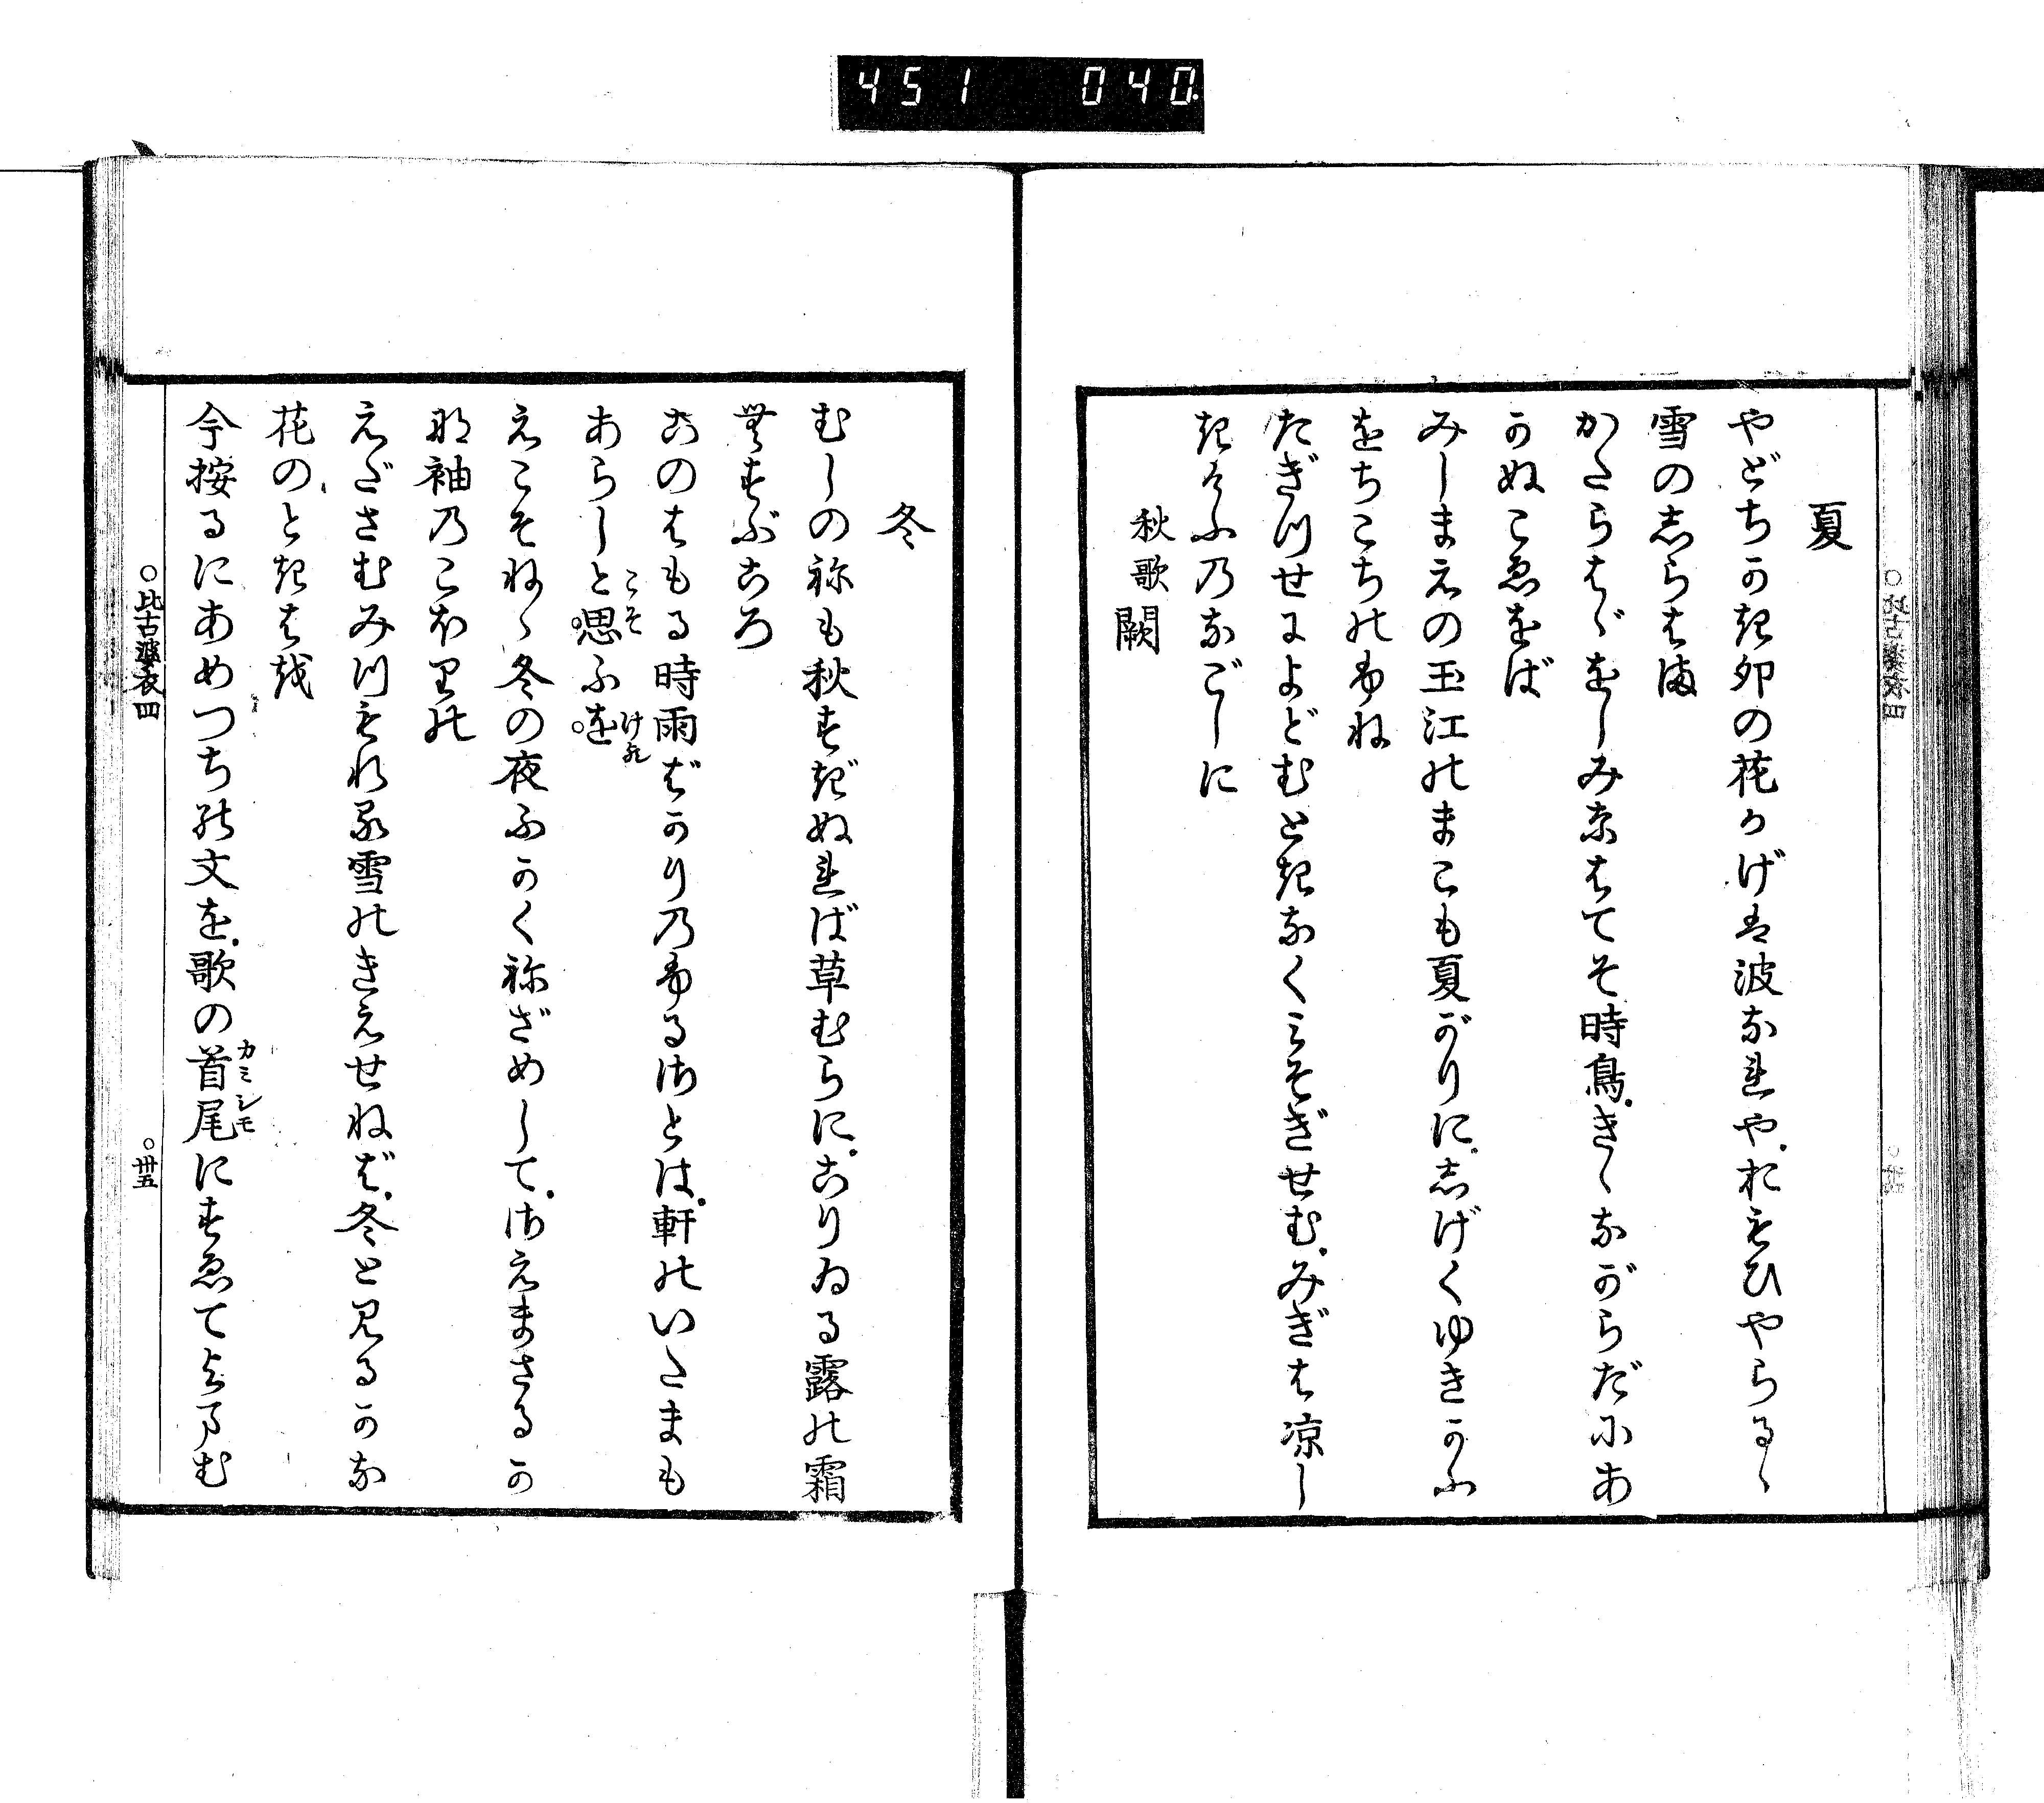 451 040
夏
やどちかき卯の花かげは波なれや、おもひやらるゝ
雪のしらはま
かたらはゞをしみなはてそ時鳥、きゝながらだにあ
かぬこゑをば
みしまえの玉江のまこも夏がりに、しげくゆきかふ
をちこちのふね
たぎつせによどむときなくみそぎせむ、みぎは凉し
きけふのなごしに
秋歌闕
冬
むしの祢も秋すぎぬれば草むらに、こりゐる露の霜
むすぶころ
このはもる時雨ばかりのふるさとは、軒のいたまも
あらしと思ふを
こそ
けれ
えこそねゝ冬の夜ふかく祢ざめして、さえまさるか
な袖のこほりの
えださむみつもれる雪のきえせねば、冬と見るかな
花のときはを
今按るにあめつちの文を、歌の首尾にすゑてよまむ
カミシモ
○比古婆衣四
○卅五